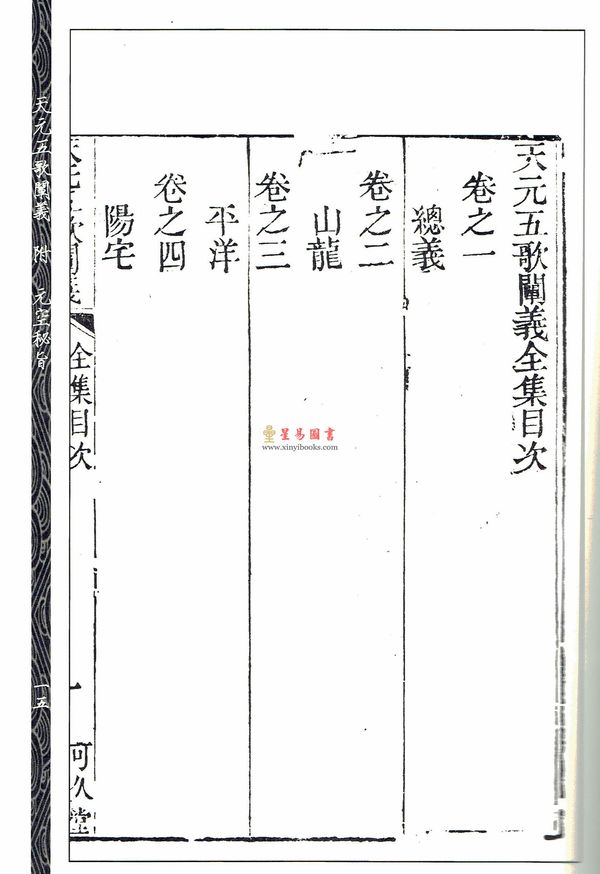 天元五歌闡義全集目次
卷之一
總義
卷之二
山龍
卷之三
平洋
卷之四
陽宅
天元五歌闡義
全集目次
一
可久堂
天元五歌闡義 附 元空秘旨
一五
星易圖書
www.xinyibooks.com